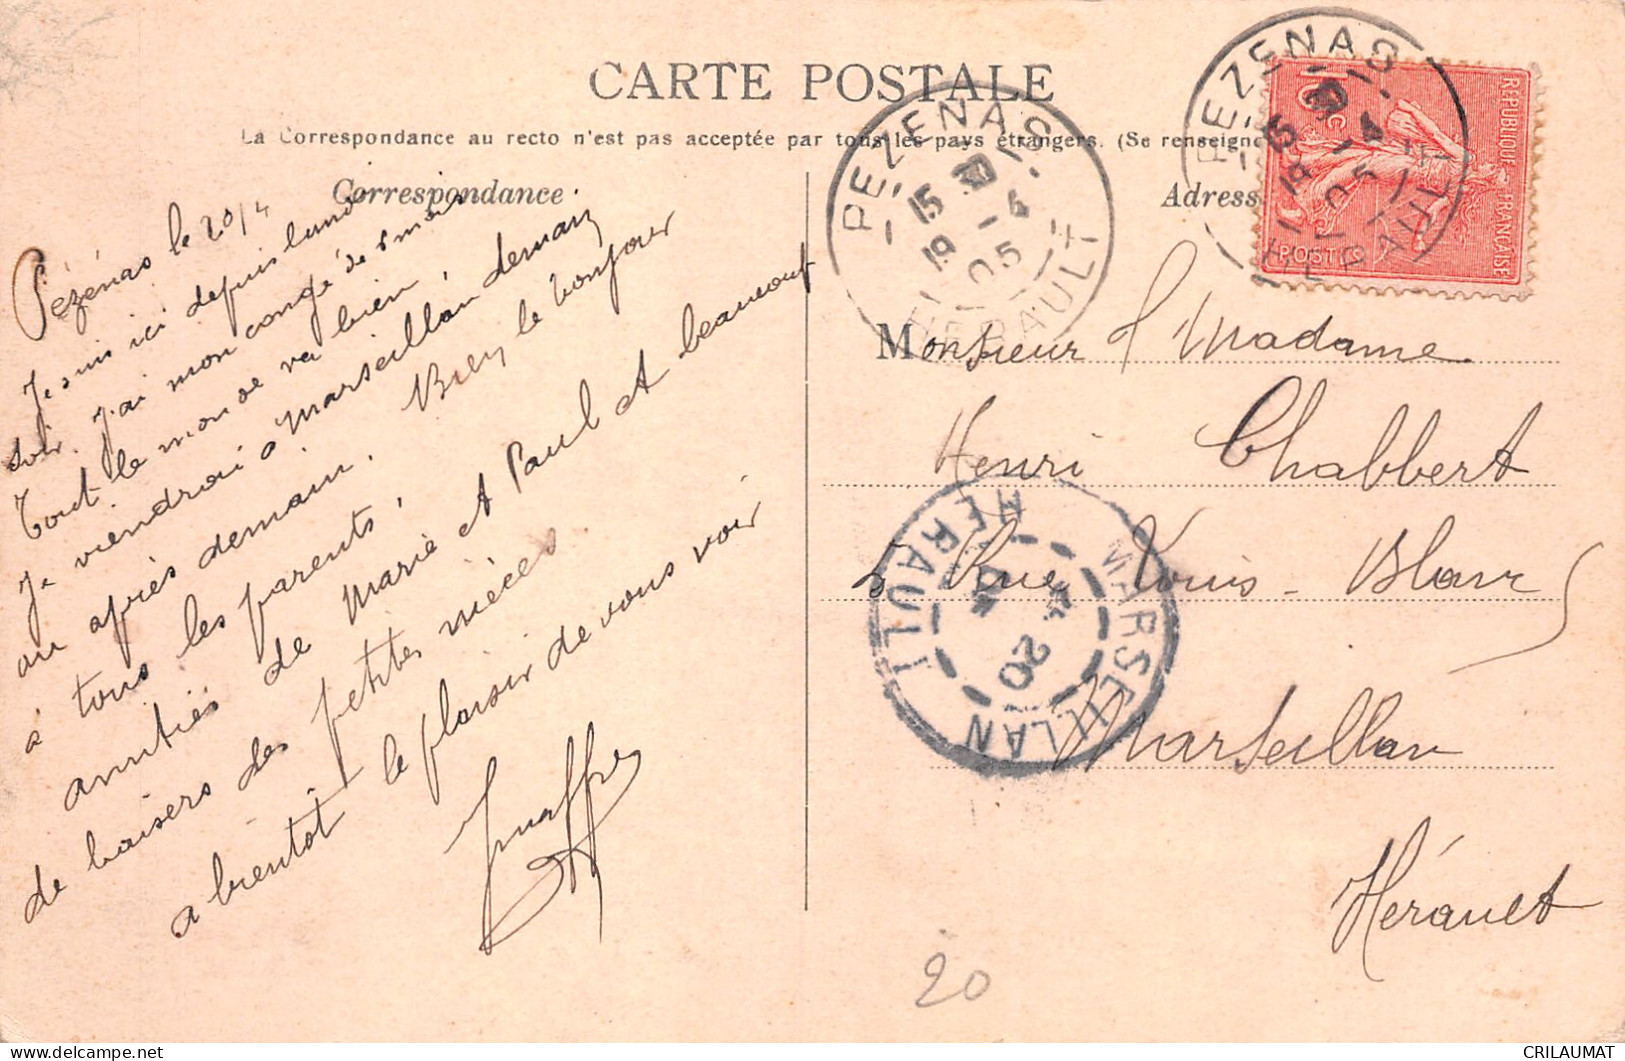 CARTE POSTALE
La Correspondance au recto n'est pas acceptée par tous les pays étrangers. (Se renseigne
Correspondance
Adress
Pézénas le 20/4
Je suis ici depuis lundi
soir. J'ai mon congé de 5 mois
Tout le monde va bien
Je viendrai à Marseillan demain
ou après demain. Bien le bonjour
à tous les parents,
amitiés de Marie et Paul et beaucoup
de baisers des petites nièces
a bientôt le plaisir de vous voir
PEZENAS
15 30
19 - 4
05
HERAULT
PEZENAS
15 30
19 - 4
05
HERAULT
REPUBLIQUE FRANÇAISE
10 c
POSTES
Monsieur & Madame
Henri Chabbert
5 Rue Louis-Blanc
Marseillan
Hérault
MARSEILLAN
20
HERAULT
20
CRILAUMAT